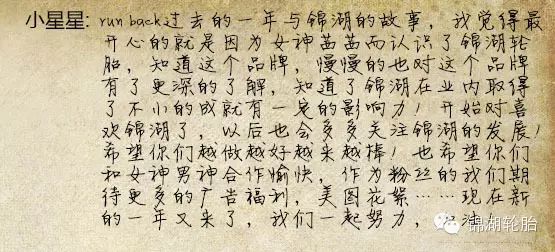 小星星: run back过去的一年与锦湖的故事，我觉得最
开心的就是因为女神茜茜而认识了锦湖轮
胎，知道这个品牌，慢慢的也对这个品牌
有了更深的了解，知道了锦湖在业内取得
了不小的成就有一定的影响力！开始对喜
欢锦湖了，以后也会多多关注锦湖的发展！
希望你们越做越好越来越棒！也希望你们
和女神男神合作愉快，作为粉丝的我们期
待更多的广告福利，美图花絮……现在新
的一年又来了，我们一起努力，
锦湖轮胎